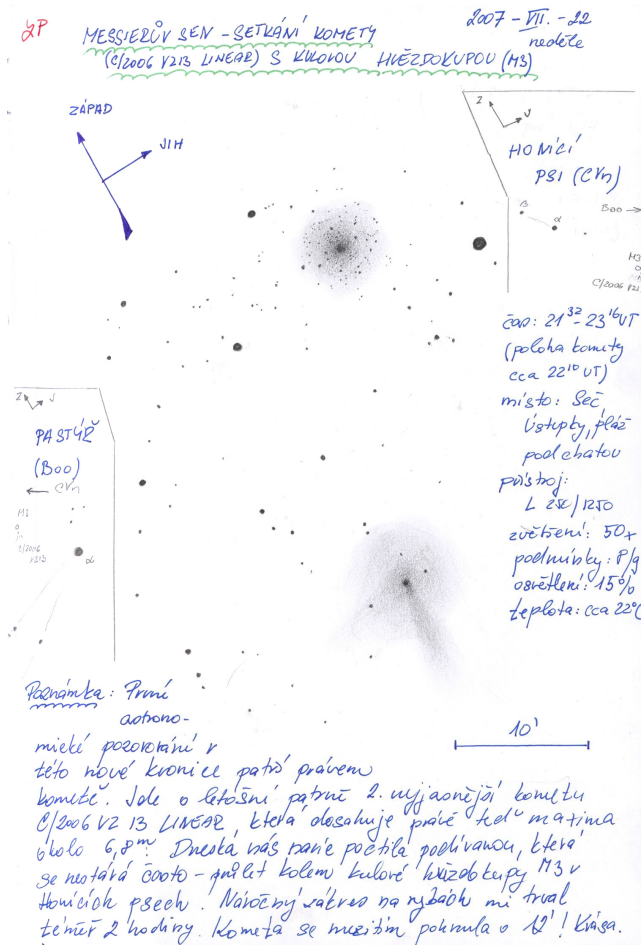 ZP
MESSIERŮV SEN - SETKÁNÍ KOMETY
(C/2006 VZ13 LINEAR) S KULOVOU HVĚZDOKUPOU (M3)
2007 - VII. - 22
neděle
ZÁPAD
JIH
Z
J
HONÍCÍ
PSI (CVn)
β
α
Boo →
M3
C/2006 VZ1
čas: 21³² - 23¹⁶ UT
(poloha komety
cca 22¹⁰ UT)
místo: Seč
Ústupky, pláž
pod chatou
přístroj:
L 250/1250
zvětšení: 50x
podmínky: 8/9
osvětlení: 15%
teplota: cca 22°C
Z
J
PASTÝŘ
(Boo)
← CVn
M3
C/2006
VZ13
α
10'
Poznámka: První
astrono-
mické pozorování v
této nové kronice patří právem
kometě. Jde o letošní patrně 2. nejjasnější kometu
C/2006 VZ 13 LINEAR, která dosahuje právě teď maxima
okolo 6,8ᵐ. Dneska nás navíc poctila podívanou, která
se nestává často - průlet kolem kulové hvězdokupy M3 v
Honících psech. Náročný zákres na rybách mi trval
téměř 2 hodiny. Kometa se mezitím pohnula o 12'! Krása.